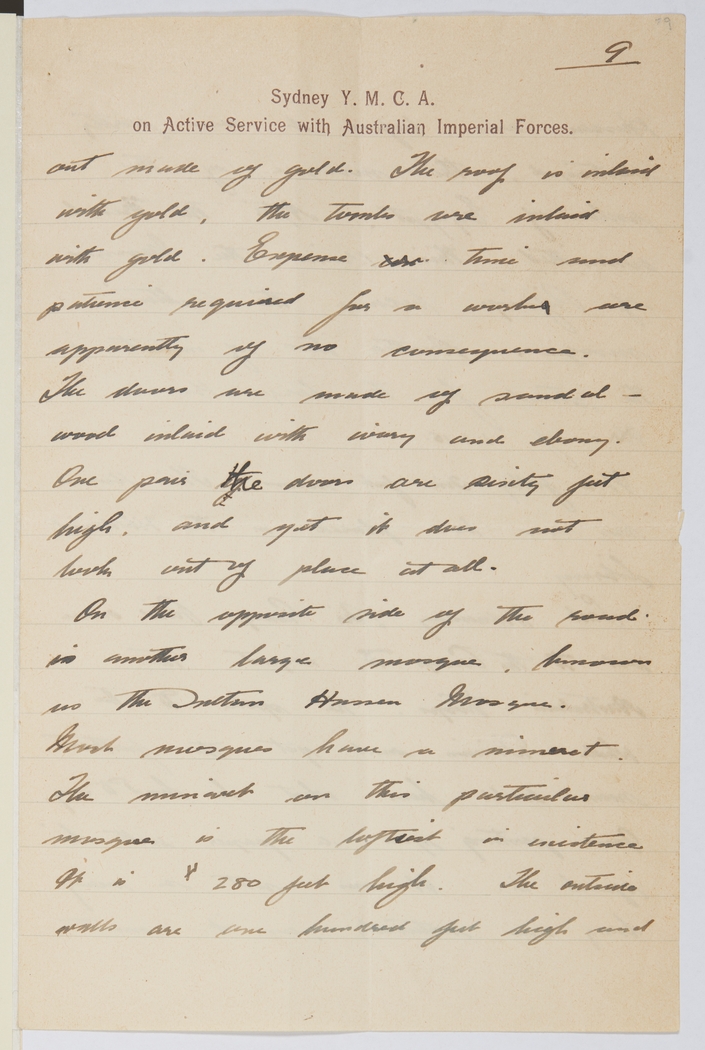 9
Sydney Y. M. C. A.
on Active Service with Australian Imperial Forces.
out made of gold. The roof is inlaid
with gold, the tombs are inlaid
with gold. Expense time and
patience required for a work are
apparently of no consequence.
The doors are made of sandal -
wood inlaid with ivory and ebony.
One pair the doors are sixty feet
high, and yet it does not
look out of place at all.
On the opposite side of the road
is another large mosque, known
as the Sultan Hassan Mosque.
Most mosques have a minaret.
The minaret on this particular
mosque is the loftiest in existence
It is 280 feet high. The outside
walls are one hundred feet high and